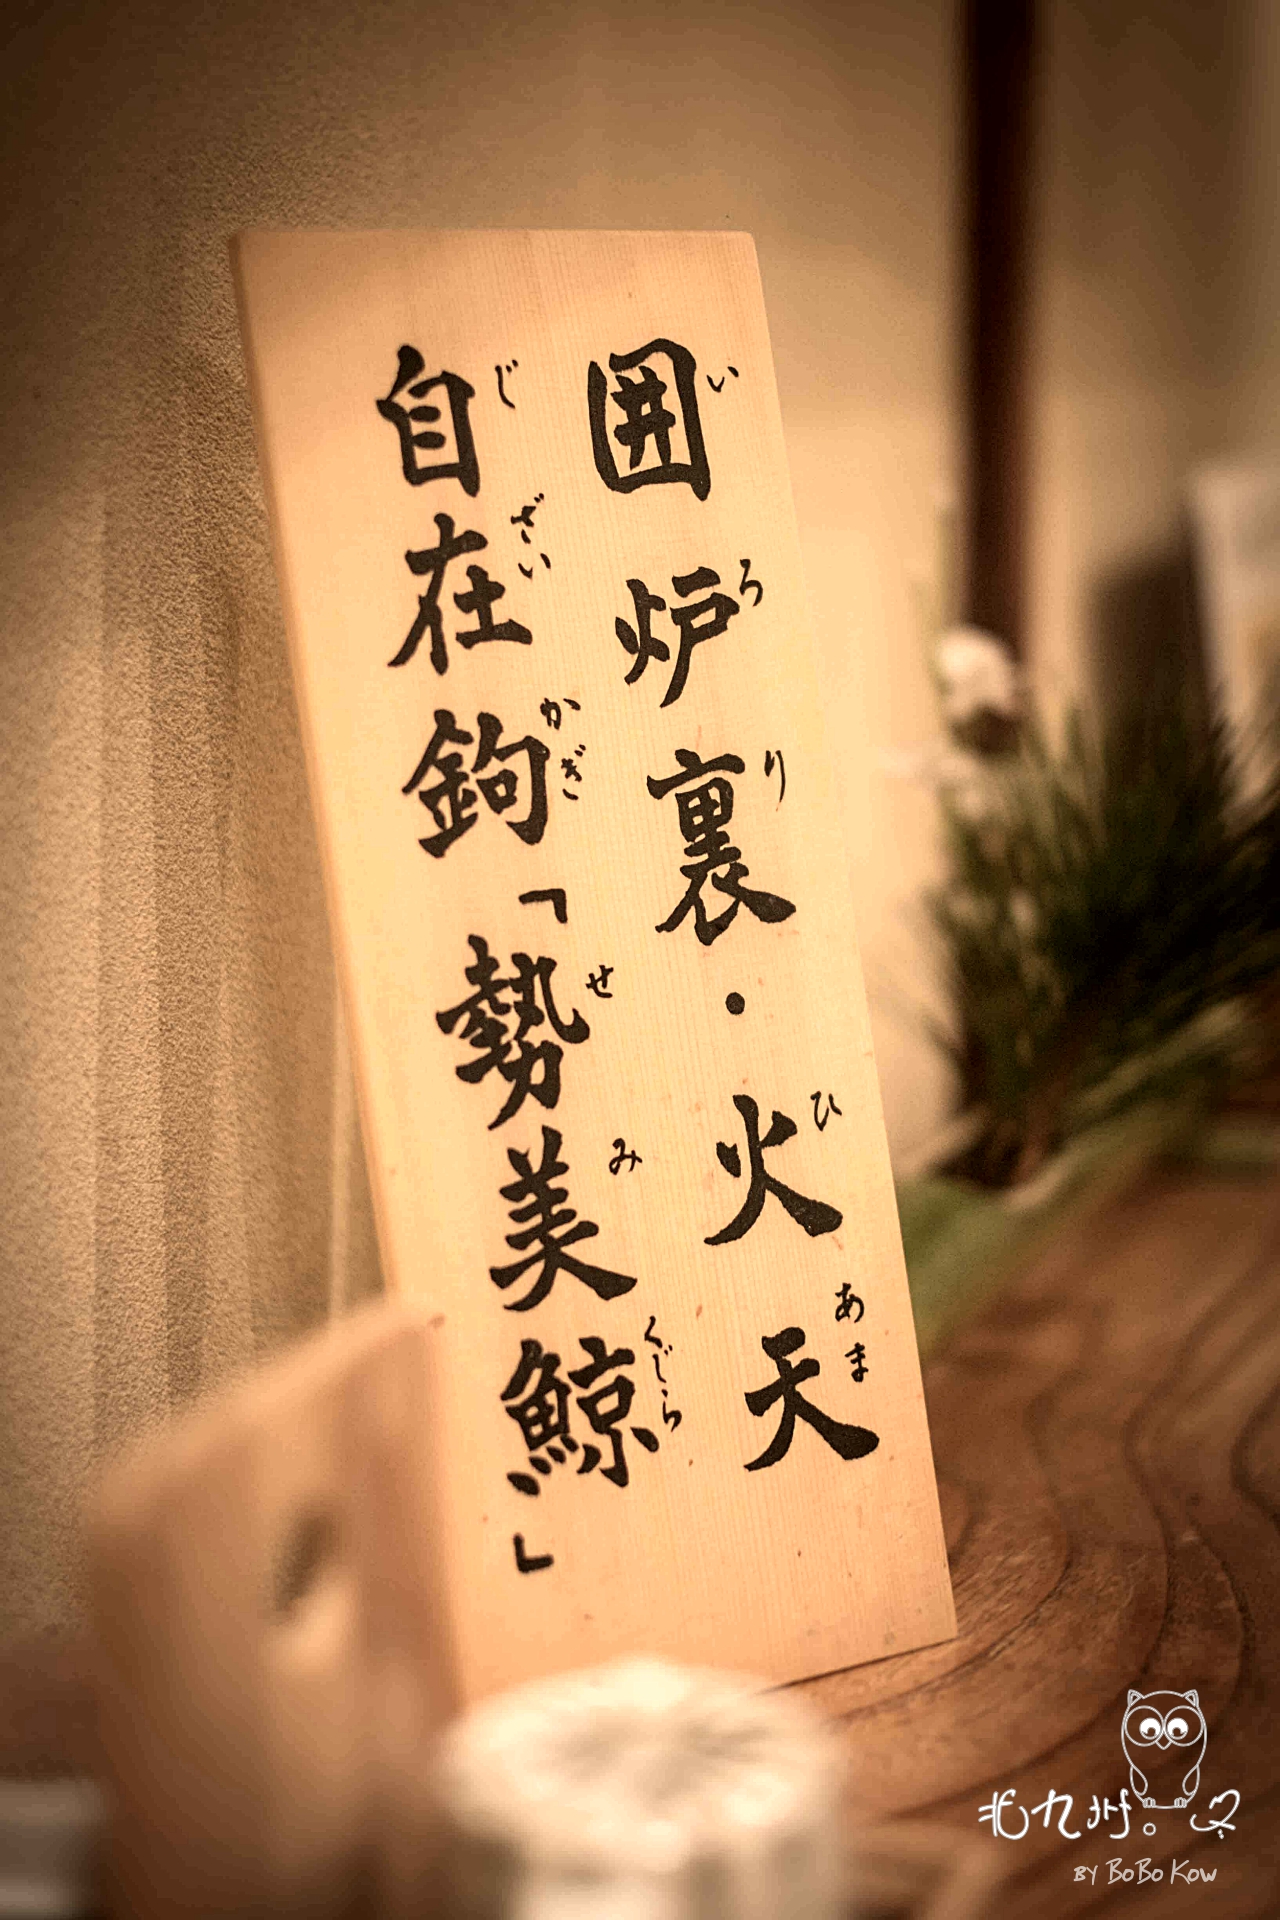 囲炉裏・火天
いろりひあま
自在鉤「勢美鯨」
じざいかぎせみくじら
北九州。
BY BoBo Kow